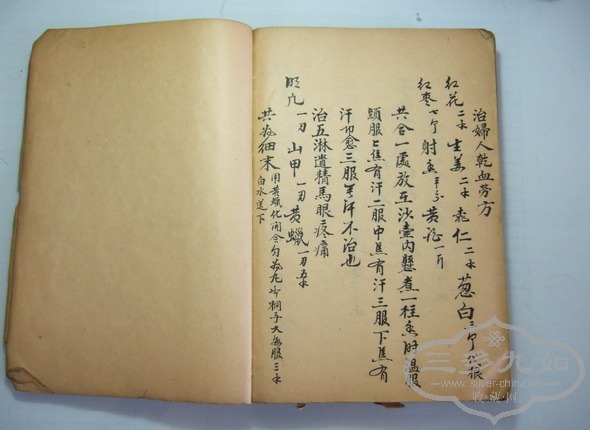 治婦人乾血劳方
红花二水 生姜二水 桃仁二水 葱白三个
红棗七个 射香半分 黄酒一斤
共合一處放瓦沙壶内懸煮一柱香时温服
頭服上焦有汗二服中焦有汗三服下焦有
汗即愈三服無汗不治也
治五淋遺精馬眼疼痛
明凡一刃 山甲一刃 黄蠟一刃五水
共為细末 用黄蠟化開合匀為丸 桐子大每服三水
白水送下
三多九如
www.silver-china.net
收·藏·网